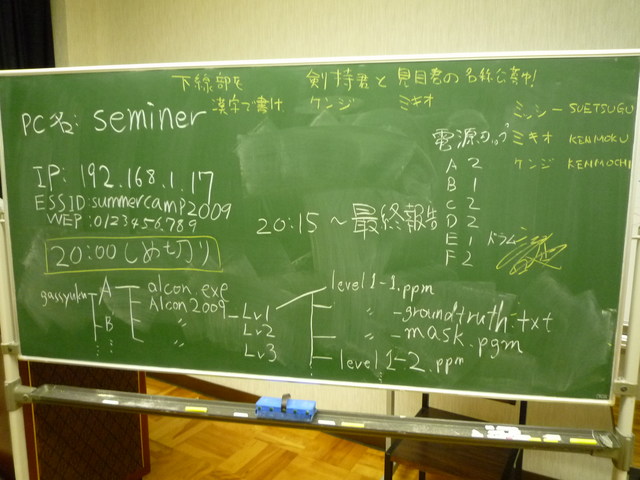 下線部を
漢字で書け
剣持君と見目君の名称公募中!
ケンジ ミキオ
ミッシー SUETSUGU
ミキオ KENMOKU
ケンジ KENMOCHI
PC名: seminer
IP: 192.168.1.17
ESSID:summercamp2009
WEP:0123456789
20:00しめ切り
20:15 ~ 最終報告
電源タップ
A 2
B 1
C 2
D 2
E 1 ドラム
F 2
gassyuku A alcon.exe
Alcon2009 Lv1
B 〃 Lv2
〃 Lv3
level1-1.ppm
〃 -groundtruth.txt
〃 -mask.pgm
level1-2.ppm